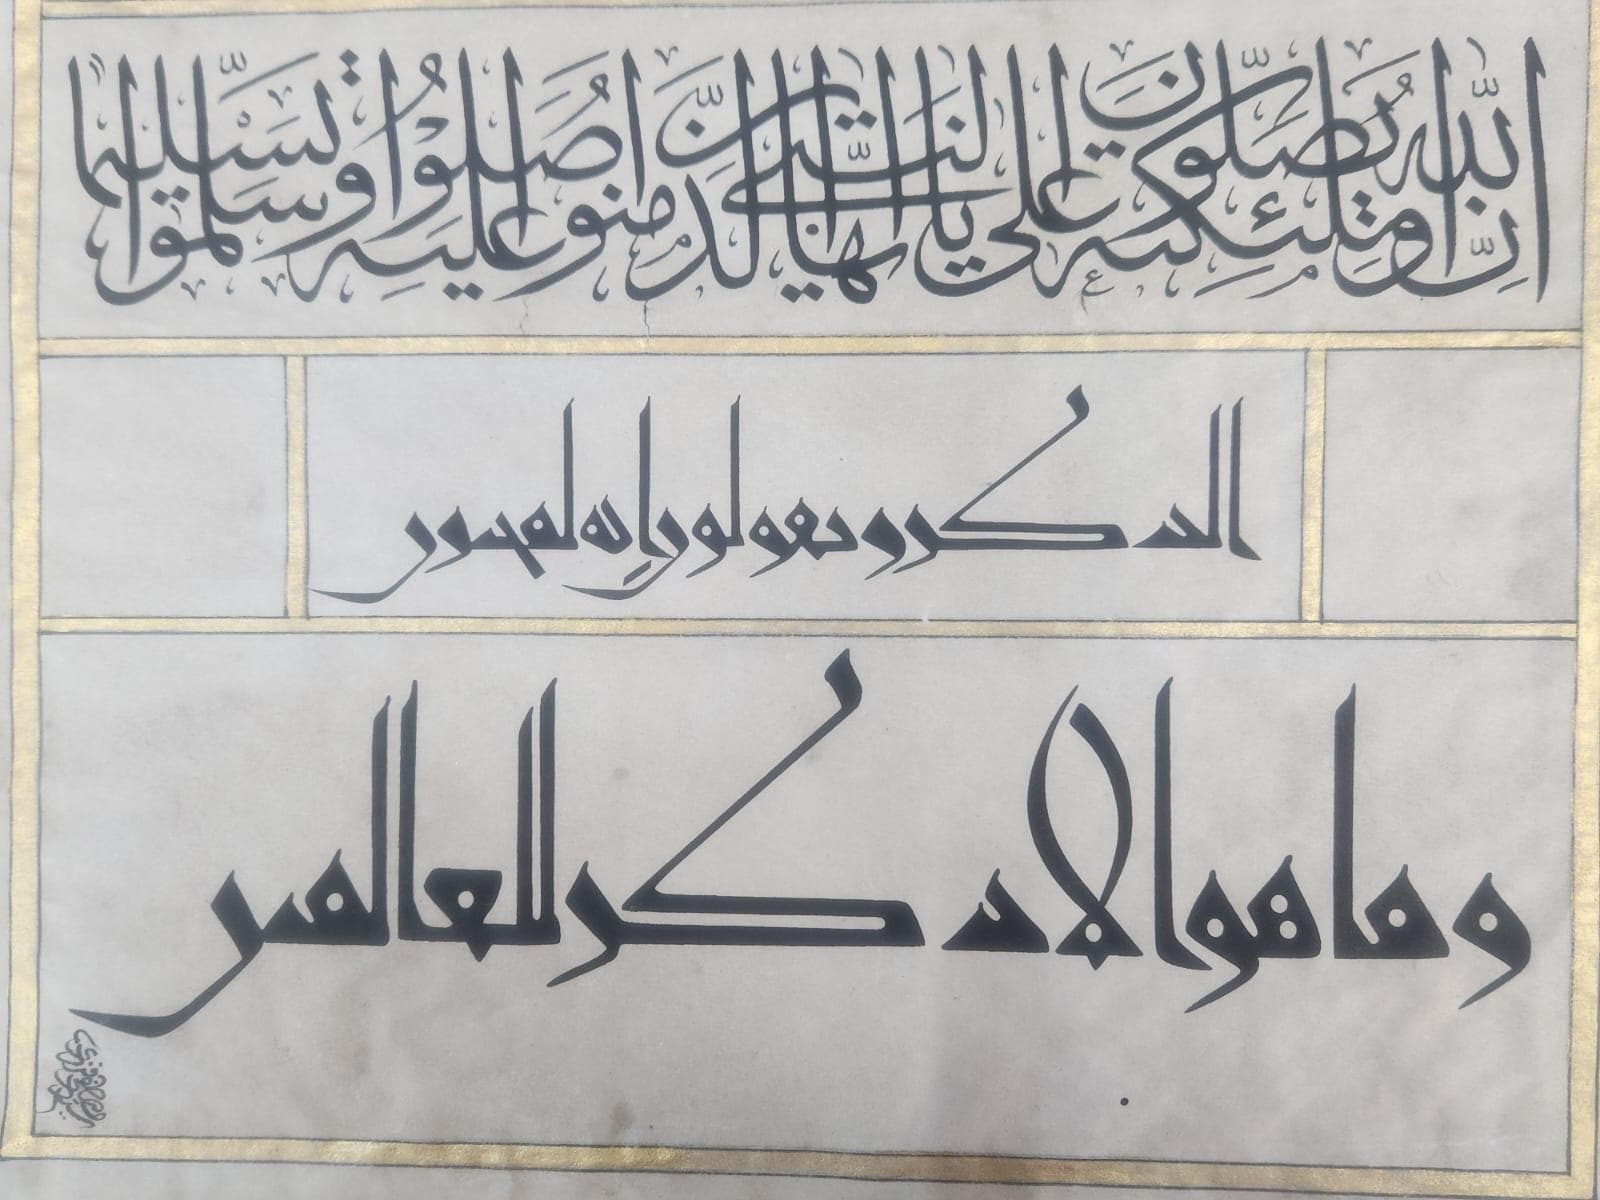 إنّ الله وملئكته يصلّون على النبي يا أيها الذين امنوا صلّوا عليه وسلّموا تسليما
الذكر ويقولون إنه لمجنون
وما هو الا ذكر للعالمين